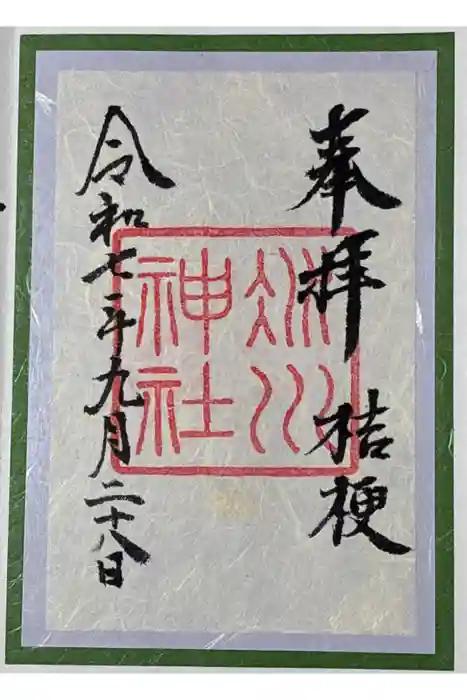 奉拝 桔梗
冰川
神社
令和七年九月二十八日